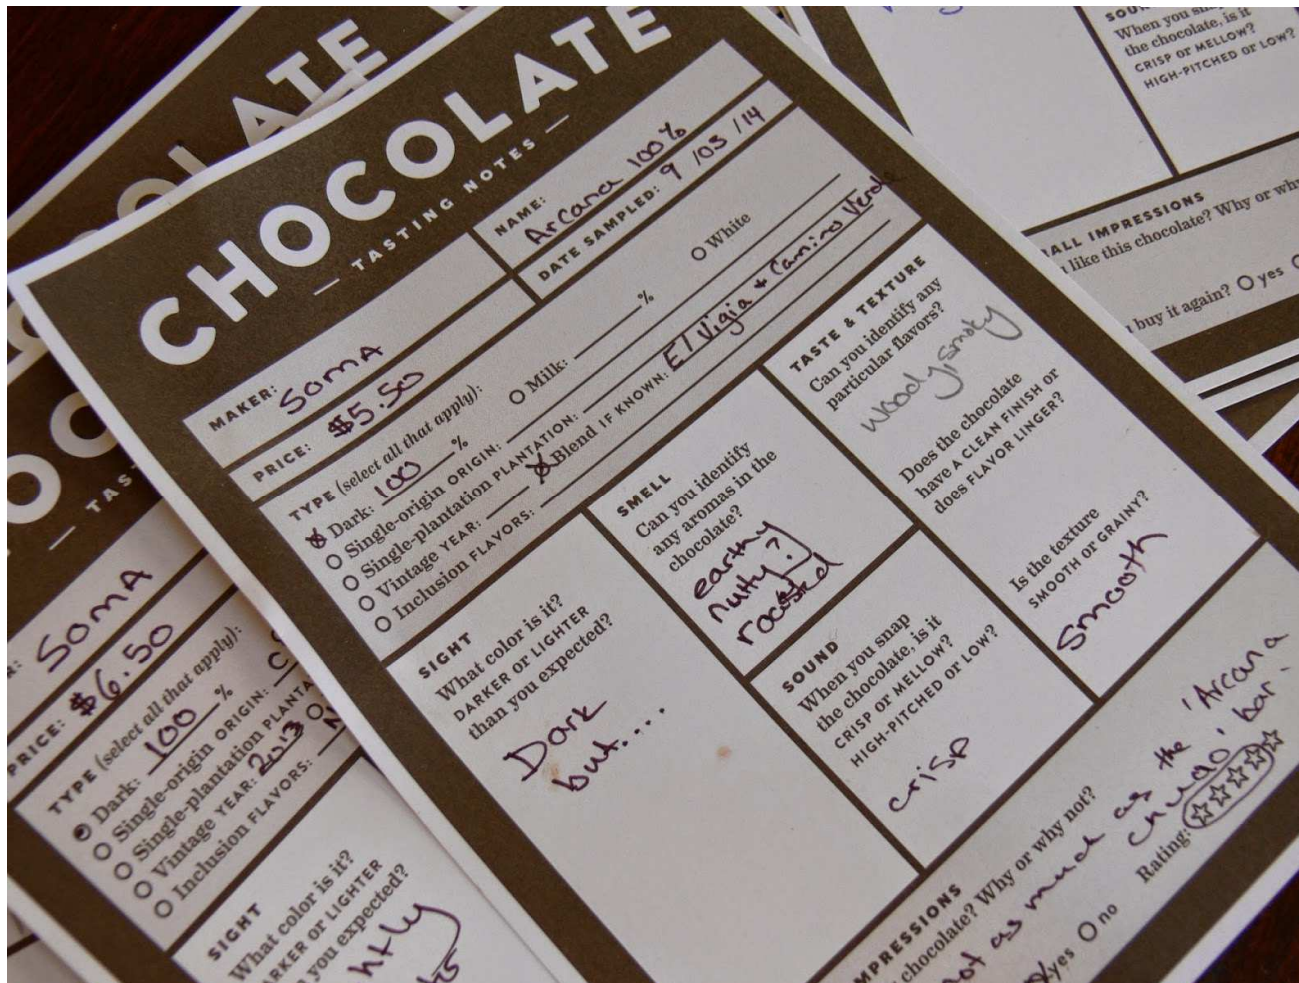 CHOCOLATE
— TASTING NOTES —
MAKER: SOMA
NAME: Arcana 100%
PRICE: $5.50
DATE SAMPLED: 9 /03 /14
TYPE (select all that apply):
Dark: 100 %
Milk: %
White
Single-origin ORIGIN:
Single-plantation PLANTATION:
Vintage YEAR:
Blend IF KNOWN: El Vigia + Camino Verde
Inclusion FLAVORS:
SIGHT
What color is it?
DARKER OR LIGHTER
than you expected?
Dark
but....
SMELL
Can you identify
any aromas in the
chocolate?
earthy
nutty?
roasted
SOUND
When you snap
the chocolate, is it
CRISP or MELLOW?
HIGH-PITCHED or LOW?
crisp
TASTE & TEXTURE
Can you identify any
particular flavors?
woody, smoky
Does the chocolate
have A CLEAN FINISH or
does FLAVOR LINGER?
Is the texture
SMOOTH or GRAINY?
Smooth
IMPRESSIONS
chocolate? Why or why not?
not as much as the 'Arcana
bar.
yes no
Rating:
SOMA
PRICE: $6.50
TYPE (select all that apply):
Dark: 100 %
Single-origin ORIGIN:
Single-plantation
Vintage YEAR: 2013
Inclusion FLAVORS:
SIGHT
What color is it?
OR LIGHTER
you expected?
When you snap
the chocolate, is it
CRISP or MELLOW?
HIGH-PITCHED or LOW?
IMPRESSIONS
like this chocolate? Why or why
buy it again? yes